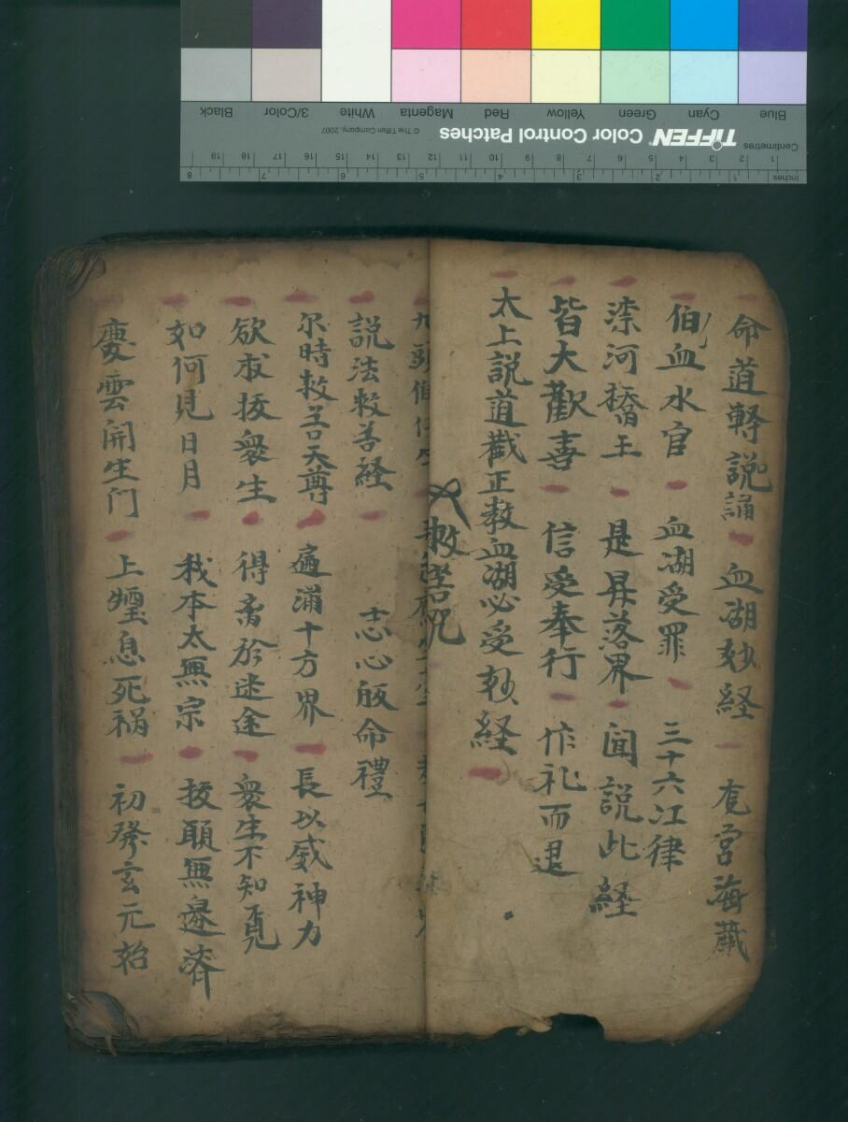 命道轉説誦 血湖妙経 宮海藏
伯血水官 血湖受罪 三十六江律
深河橋王 是昇落界 聞説此経
皆大歡喜 信受奉行 作礼而退
太上説道戡正教血湖必受妙経
救苦咒
説法救善経 志心皈命禮
尔時救苦天尊 遍满十方界 長以威神力
欲救拔衆生 得离於迷途 衆生不知覓
如何見日月 我本太無宗 拔願無邊濟
慶雲開生门 上煙息死禍 初發玄元
TIFFEN Color Control Patches
© The Tiffen Company, 2007
Blue Cyan Green Yellow Red Magenta White 3/Color Black
Centimetres 1 2 3 4 5 6 7 8 9 10 11 12 13 14 15 16 17 18 19
Inches 1 2 3 4 5 6 7 8